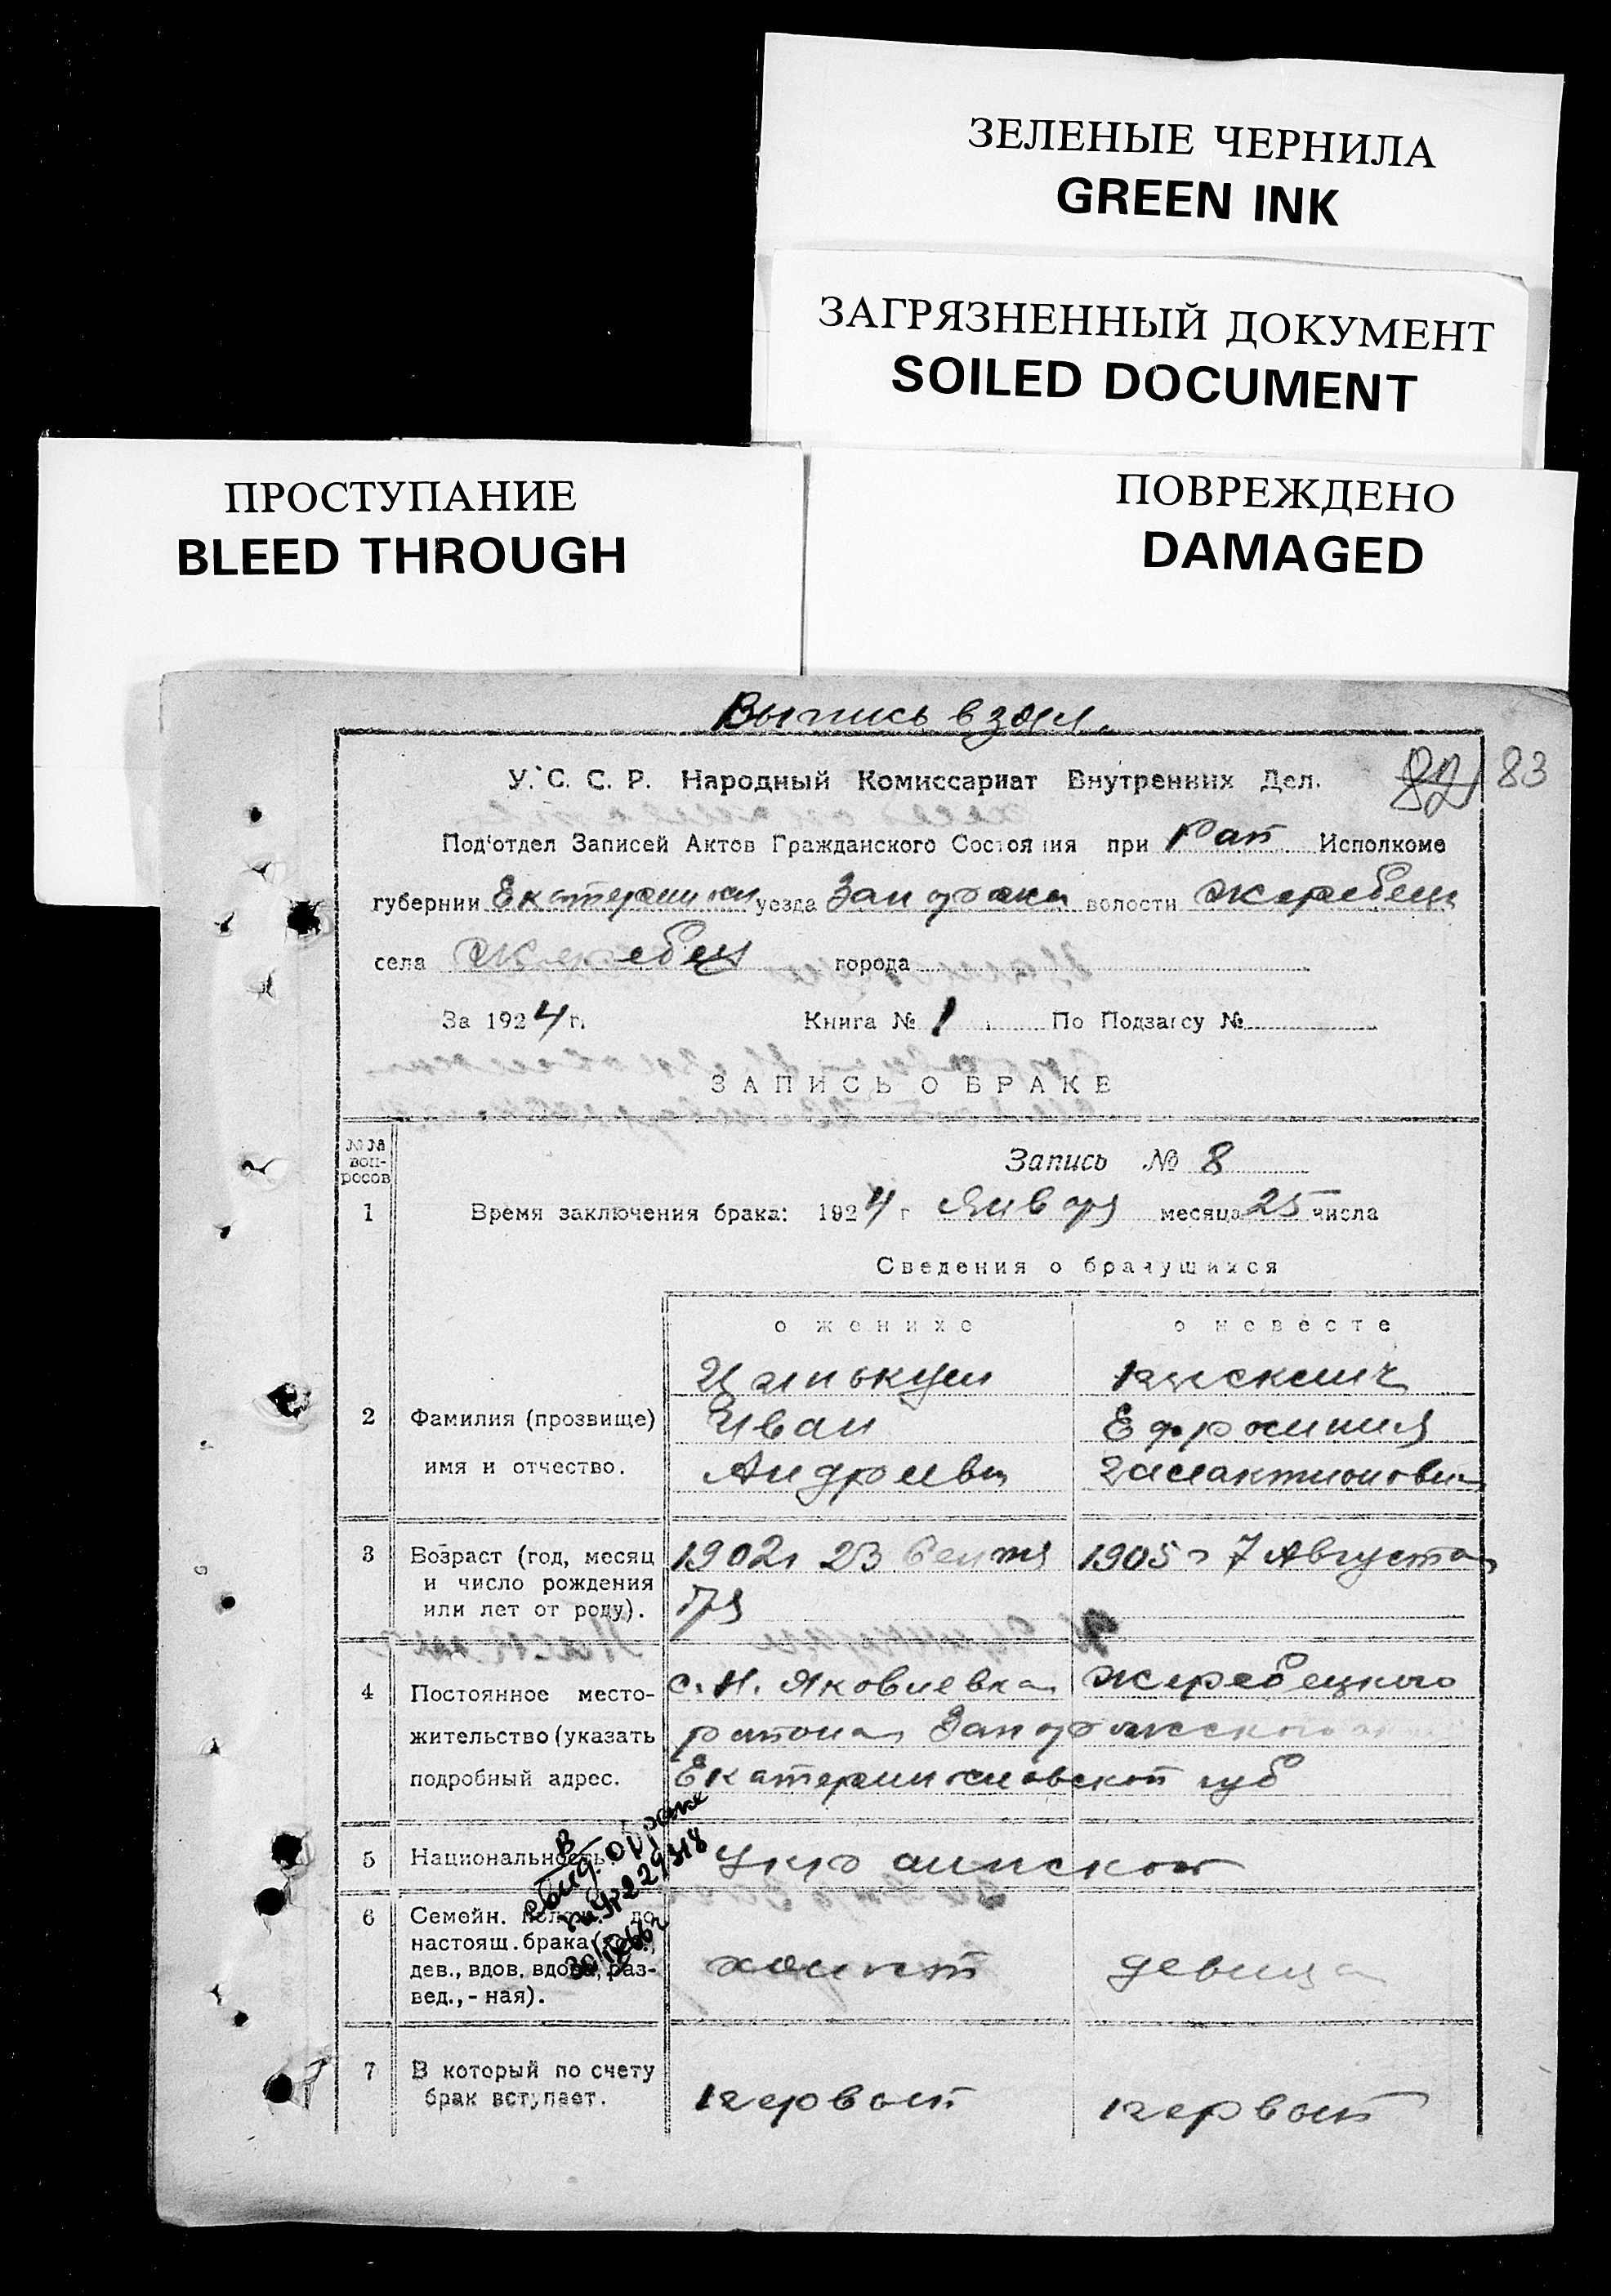 ЗЕЛЕНЫЕ ЧЕРНИЛА
GREEN INK
ЗАГРЯЗНЕННЫЙ ДОКУМЕНТ
SOILED DOCUMENT
ПРОСТУПАНИЕ
BLEED THROUGH
ПОВРЕЖДЕНО
DAMAGED
Выпись
У. С. С. Р. Народный Комиссариат Внутренних Дел. 82 83
Под'отдел Записей Актов Гражданского Состояния при Рай Исполкоме
губернии Екатеринос уезда Запорожск волости Жеребец
села Жеребец города
За 1924 г. Книга № 1 По Подзагсу №
ЗАПИСЬ О БРАКЕ
№№ воп-росов
Запись № 8
1 Время заключения брака: 1924 г Январ месяца 25 числа
Сведения о брачущихся
о женихе о невесте
2 Фамилия (прозвище) имя и отчество.
Иван Ефросиния
Андреевич Галактионовна
3 Возраст (год, месяц и число рождения или лет от роду).
1902 г 23 Сентя 1905 г 7 Августа
бря
4 Постоянное место-жительство (указать подробный адрес.
с. Н. Яковлевка Жеребецкого
района Запорожского
Екатеринославской губ
5 Национальность. Украинской
6 Семейн. полож. до настоящ. брака (хол., дев., вдов, вдова, раз-вед., - ная).
холост девица
свид. о браке
229318
7 В который по счету брак вступает.
первый первый